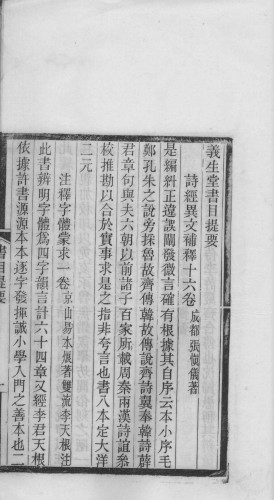 義生堂書目提要
詩經異文補釋十六卷 成都張慎儀著
是編糾正違誤闡發微言確有根據其自序云本小序毛
鄭孔朱之說旁採魯故齊傳韓故傳說齊詩翼奉韓詩薛
君章句與夫六朝以前諸子百家所載周秦兩漢詩誼參
校推勘以合於實事求是之指非夸言也書八本定大洋
二元
注釋字體蒙求一卷 京山易本烺著雙流李天根注
此書辨明字體爲四字韻言計六十四章又經李君天根
依據許書源源本本逐字發揮誠小學入門之善本也一
書目提要
一